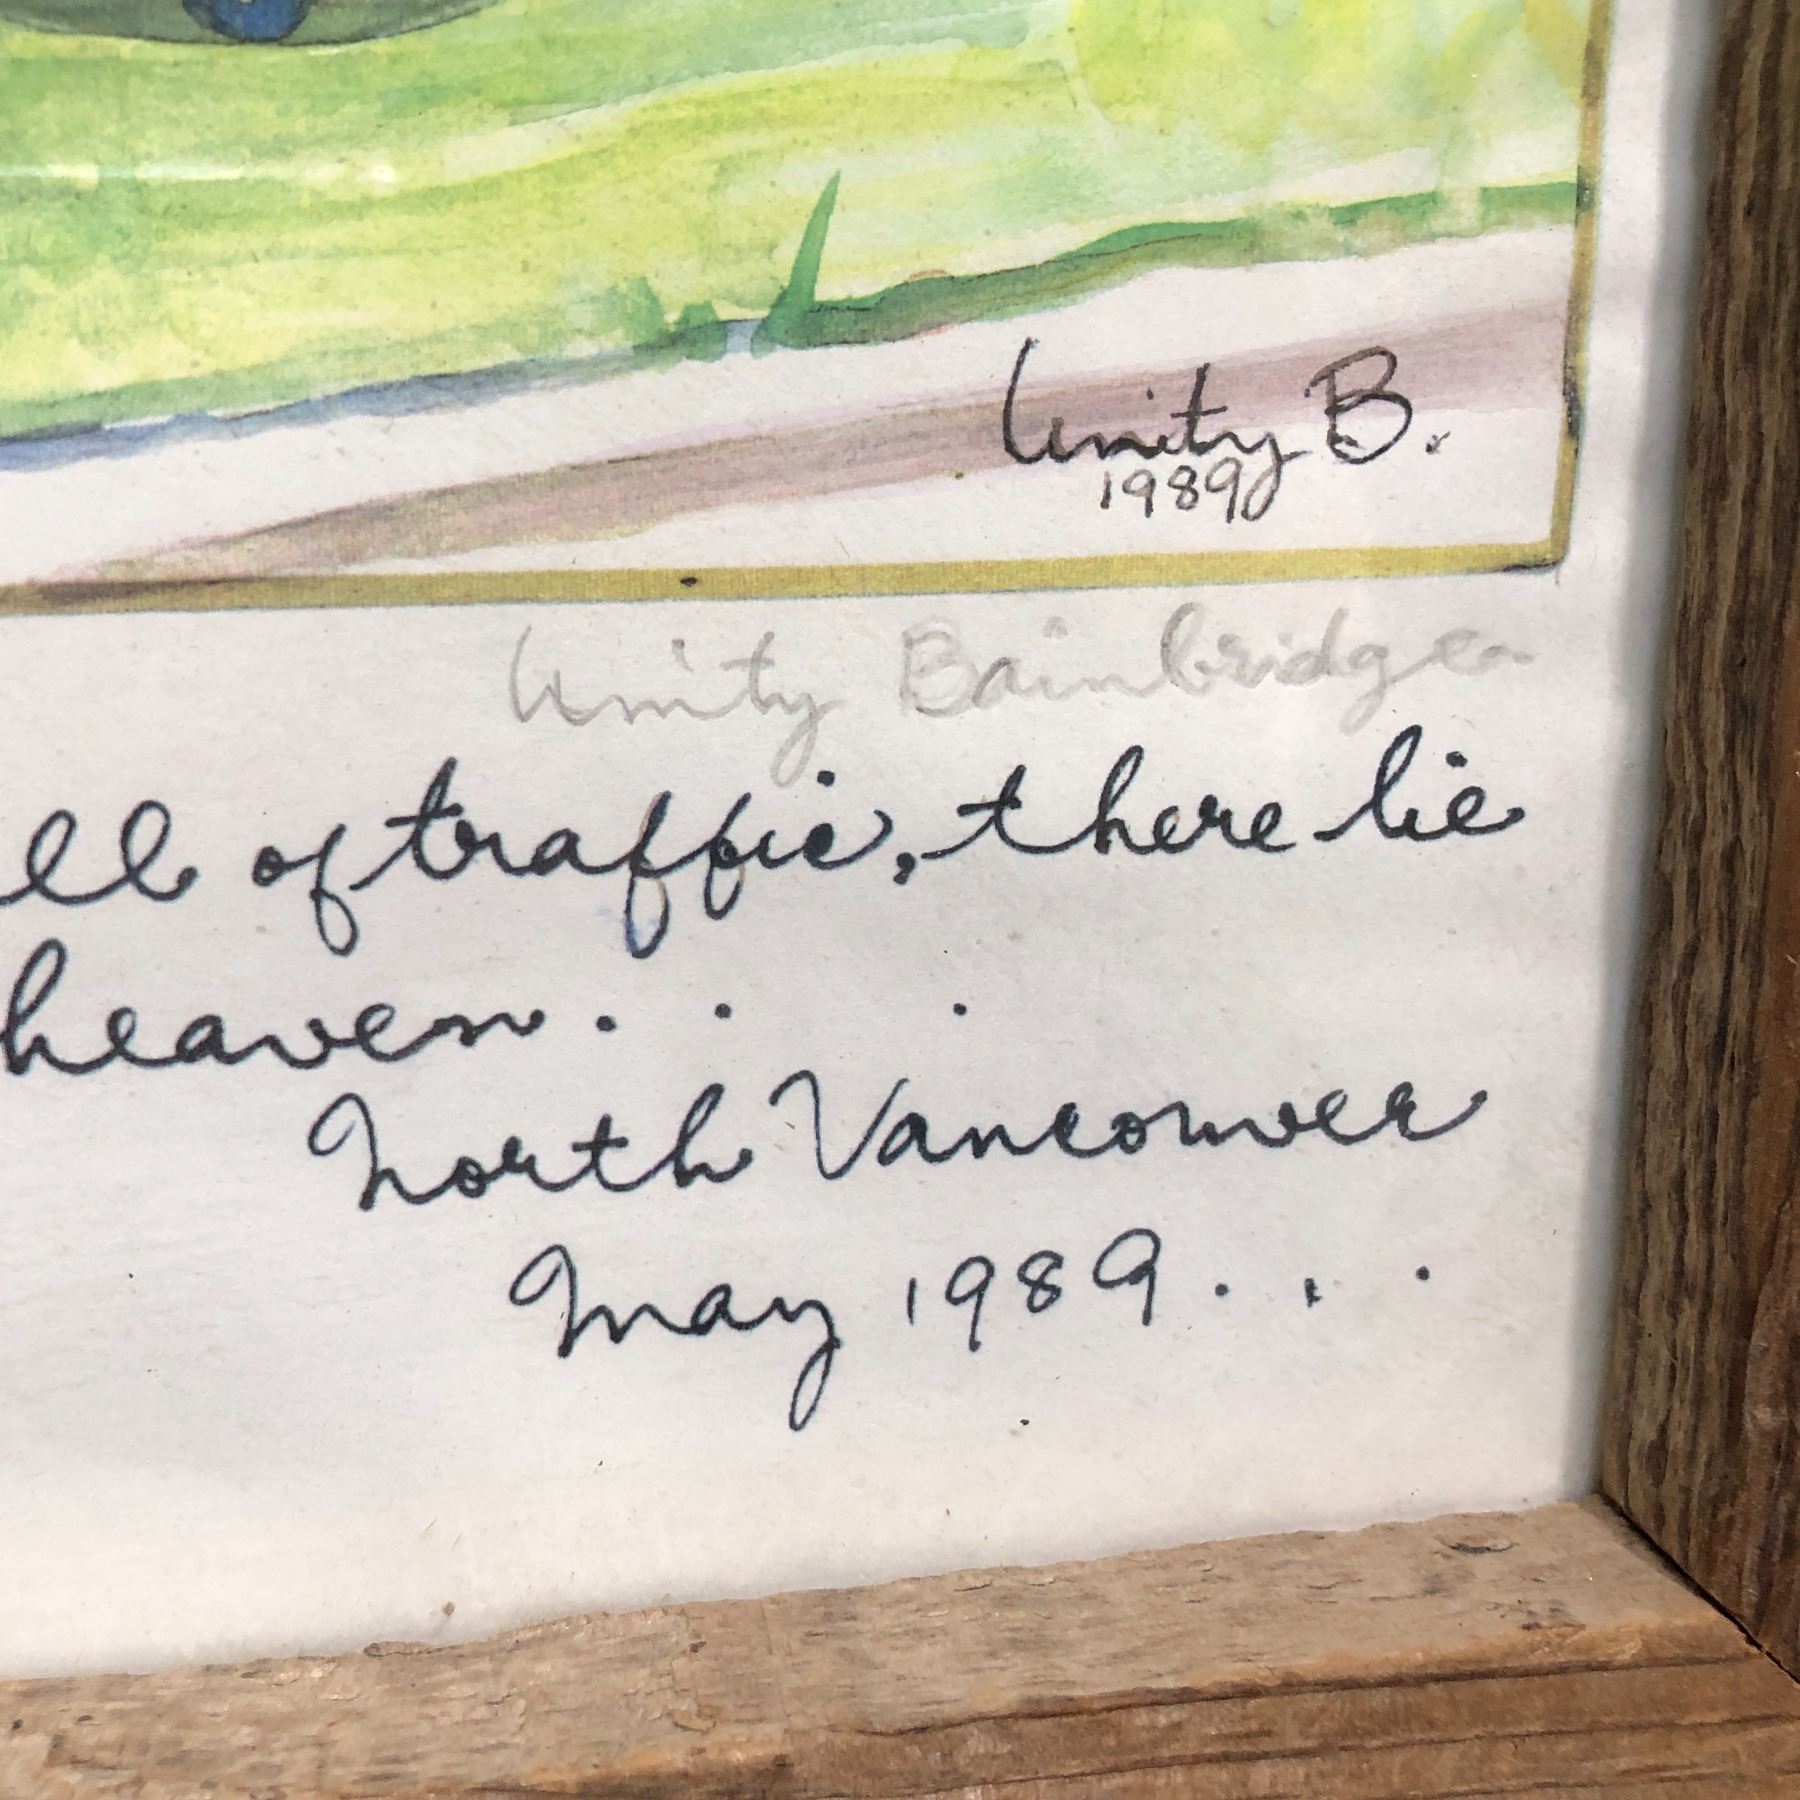 Unity B.
1989
Unity Bainbridge
of traffic, there lie
heaven. . .
North Vancouver
May 1989. . .